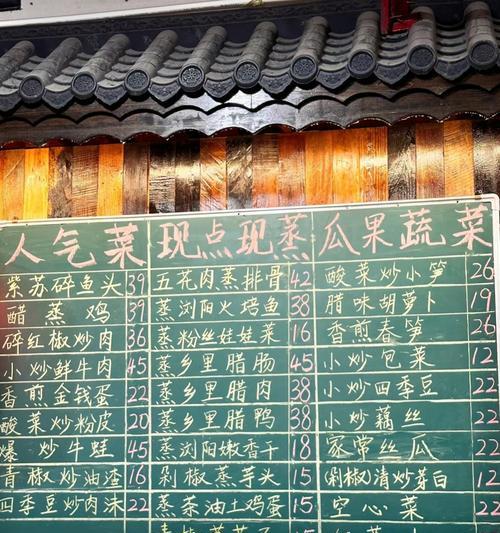 人气菜
紫苏碎鱼头 39
醋蒸鸡 39
碎红椒炒肉 36
小炒鲜牛肉 45
香煎金钱蛋 22
酸菜炒粉皮 20
爆炒牛蛙 45
青椒炒油渣 16
四季豆炒肉沫 22
现点现蒸
五花肉蒸排骨 42
蒸浏阳火焙鱼 38
蒸粉丝娃娃菜 16
蒸乡里腊肠 45
蒸乡里腊肉 38
蒸乡里腊鸭 38
蒸浏阳嫩香干 18
剁椒蒸芋头 15
蒸茶油土鸡蛋 15
瓜果蔬菜
酸菜炒小笋 26
腊味胡萝卜 19
香煎春笋 26
小炒包菜 12
小炒四季豆 22
小炒藕丝 22
家常丝瓜 22
(剁椒)清炒芽白 12
空心菜 22